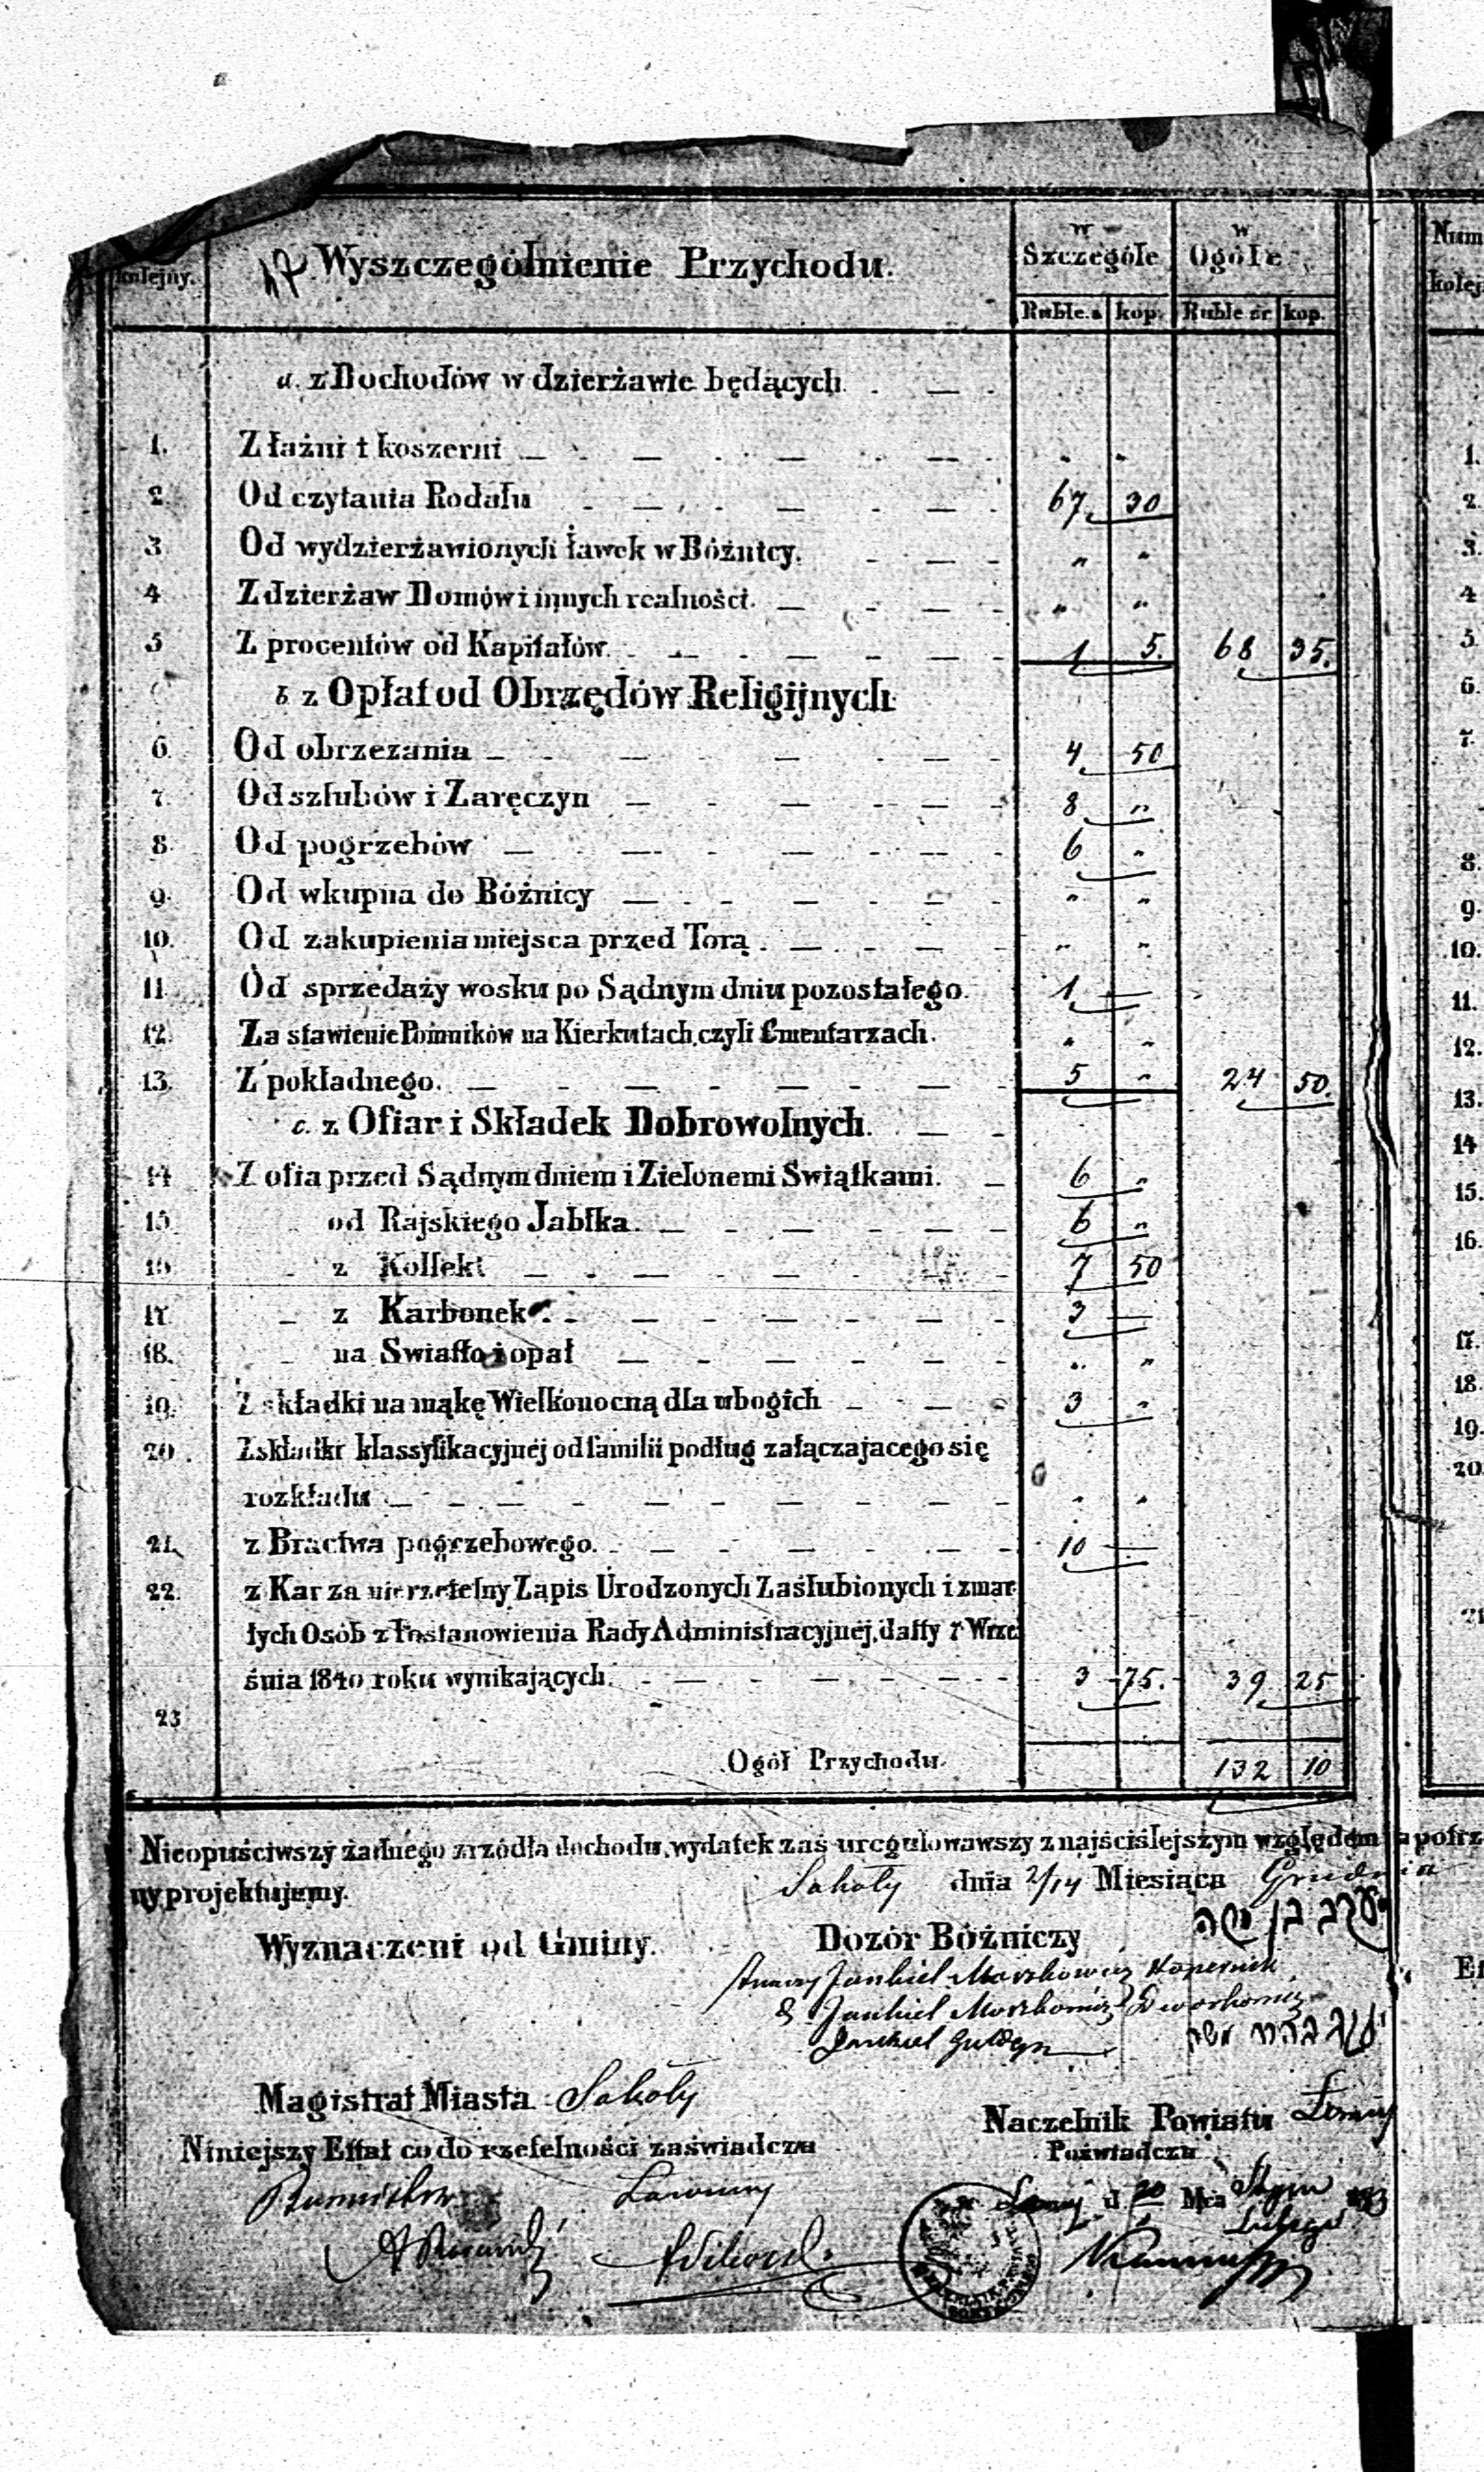 kolejny. Wyszczególnienie Przychodu. w Szczególe w Ogóle
Ruble.s kop. Ruble sr kop.
a. z Dochodów w dzierżawie będących.
1. Z łaźni i koszerni " "
2. Od czytania Rodału 67 30
3 Od wydzierżawionych ławek w Bóżnicy. " "
4 Z dzierżaw Domów i innych realności. " "
5 Z procentów od Kapitałów. 1 5. 68 35.
b z Opłat od Obrzędów Religijnych
6. Od obrzezania 4 50
7. Od szlubów i Zaręczyn 8 "
8. Od pogrzebów 6 "
9. Od wkupna do Bóżnicy " "
10. Od zakupienia miejsca przed Torą. " "
11. Od sprzedaży wosku po Sądnym dniu pozostałego. 1 —
12. Za stawienie Pomników na Kierkutach, czyli Cmentarzach. " "
13. Z pokładnego. 5 " 24 50.
c. z Ofiar i Składek Dobrowolnych.
14 Z ofia przed Sądnym dniem i Zielonemi Swiątkami. 6 "
15 od Rajskiego Jabłka. 6 "
16 z Kollekt 7 50
17. z Karbonek 3 —
18. na Swiatło i opał " "
19. Z składki na mąkę Wielkonocną dla ubogich 3 "
20. Z składki klassyfikacyjnéj od familii podług załączajacego się
rozkładu " "
21. z Bractwa pogrzebowego. 10 —
22. z Kar za nierzetelny Zapis Urodzonych Zaślubionych i zmar
łych Osób z Postanowienia Rady Administracyjnéj, datty 7 Wrze
śnia 1840 roku wynikających. 3 75. 39 25
23
Ogół Przychodu. 132 10
Nieopuściwszy żadnego zrzódła dochodu, wydatek zaś uregulowawszy z najściślejszym względem na potrz
ny projektujemy.
Sokoły dnia 2/14 Miesiąca Grudnia
Wyznaczeni od Gminy. Dozór Bóżniczy
Jankiel Moszkowicz
& Jankiel Moszkowicz Dworkowicz
Magistrat Miasta Sokoły
Naczelnik Powiatu
Niniejszy Ettat co do rzetelności zaświadcza
Poświadcza
Burmistrz Ławnicy
d. 20 Mca